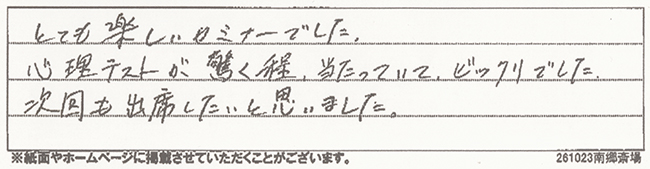 とても楽しいセミナーでした。
心理テストが驚く程、当たっていて、ビックリでした。
次回も出席したいと思いました。
※紙面やホームページに掲載させていただくことがございます。 261023南郷斎場